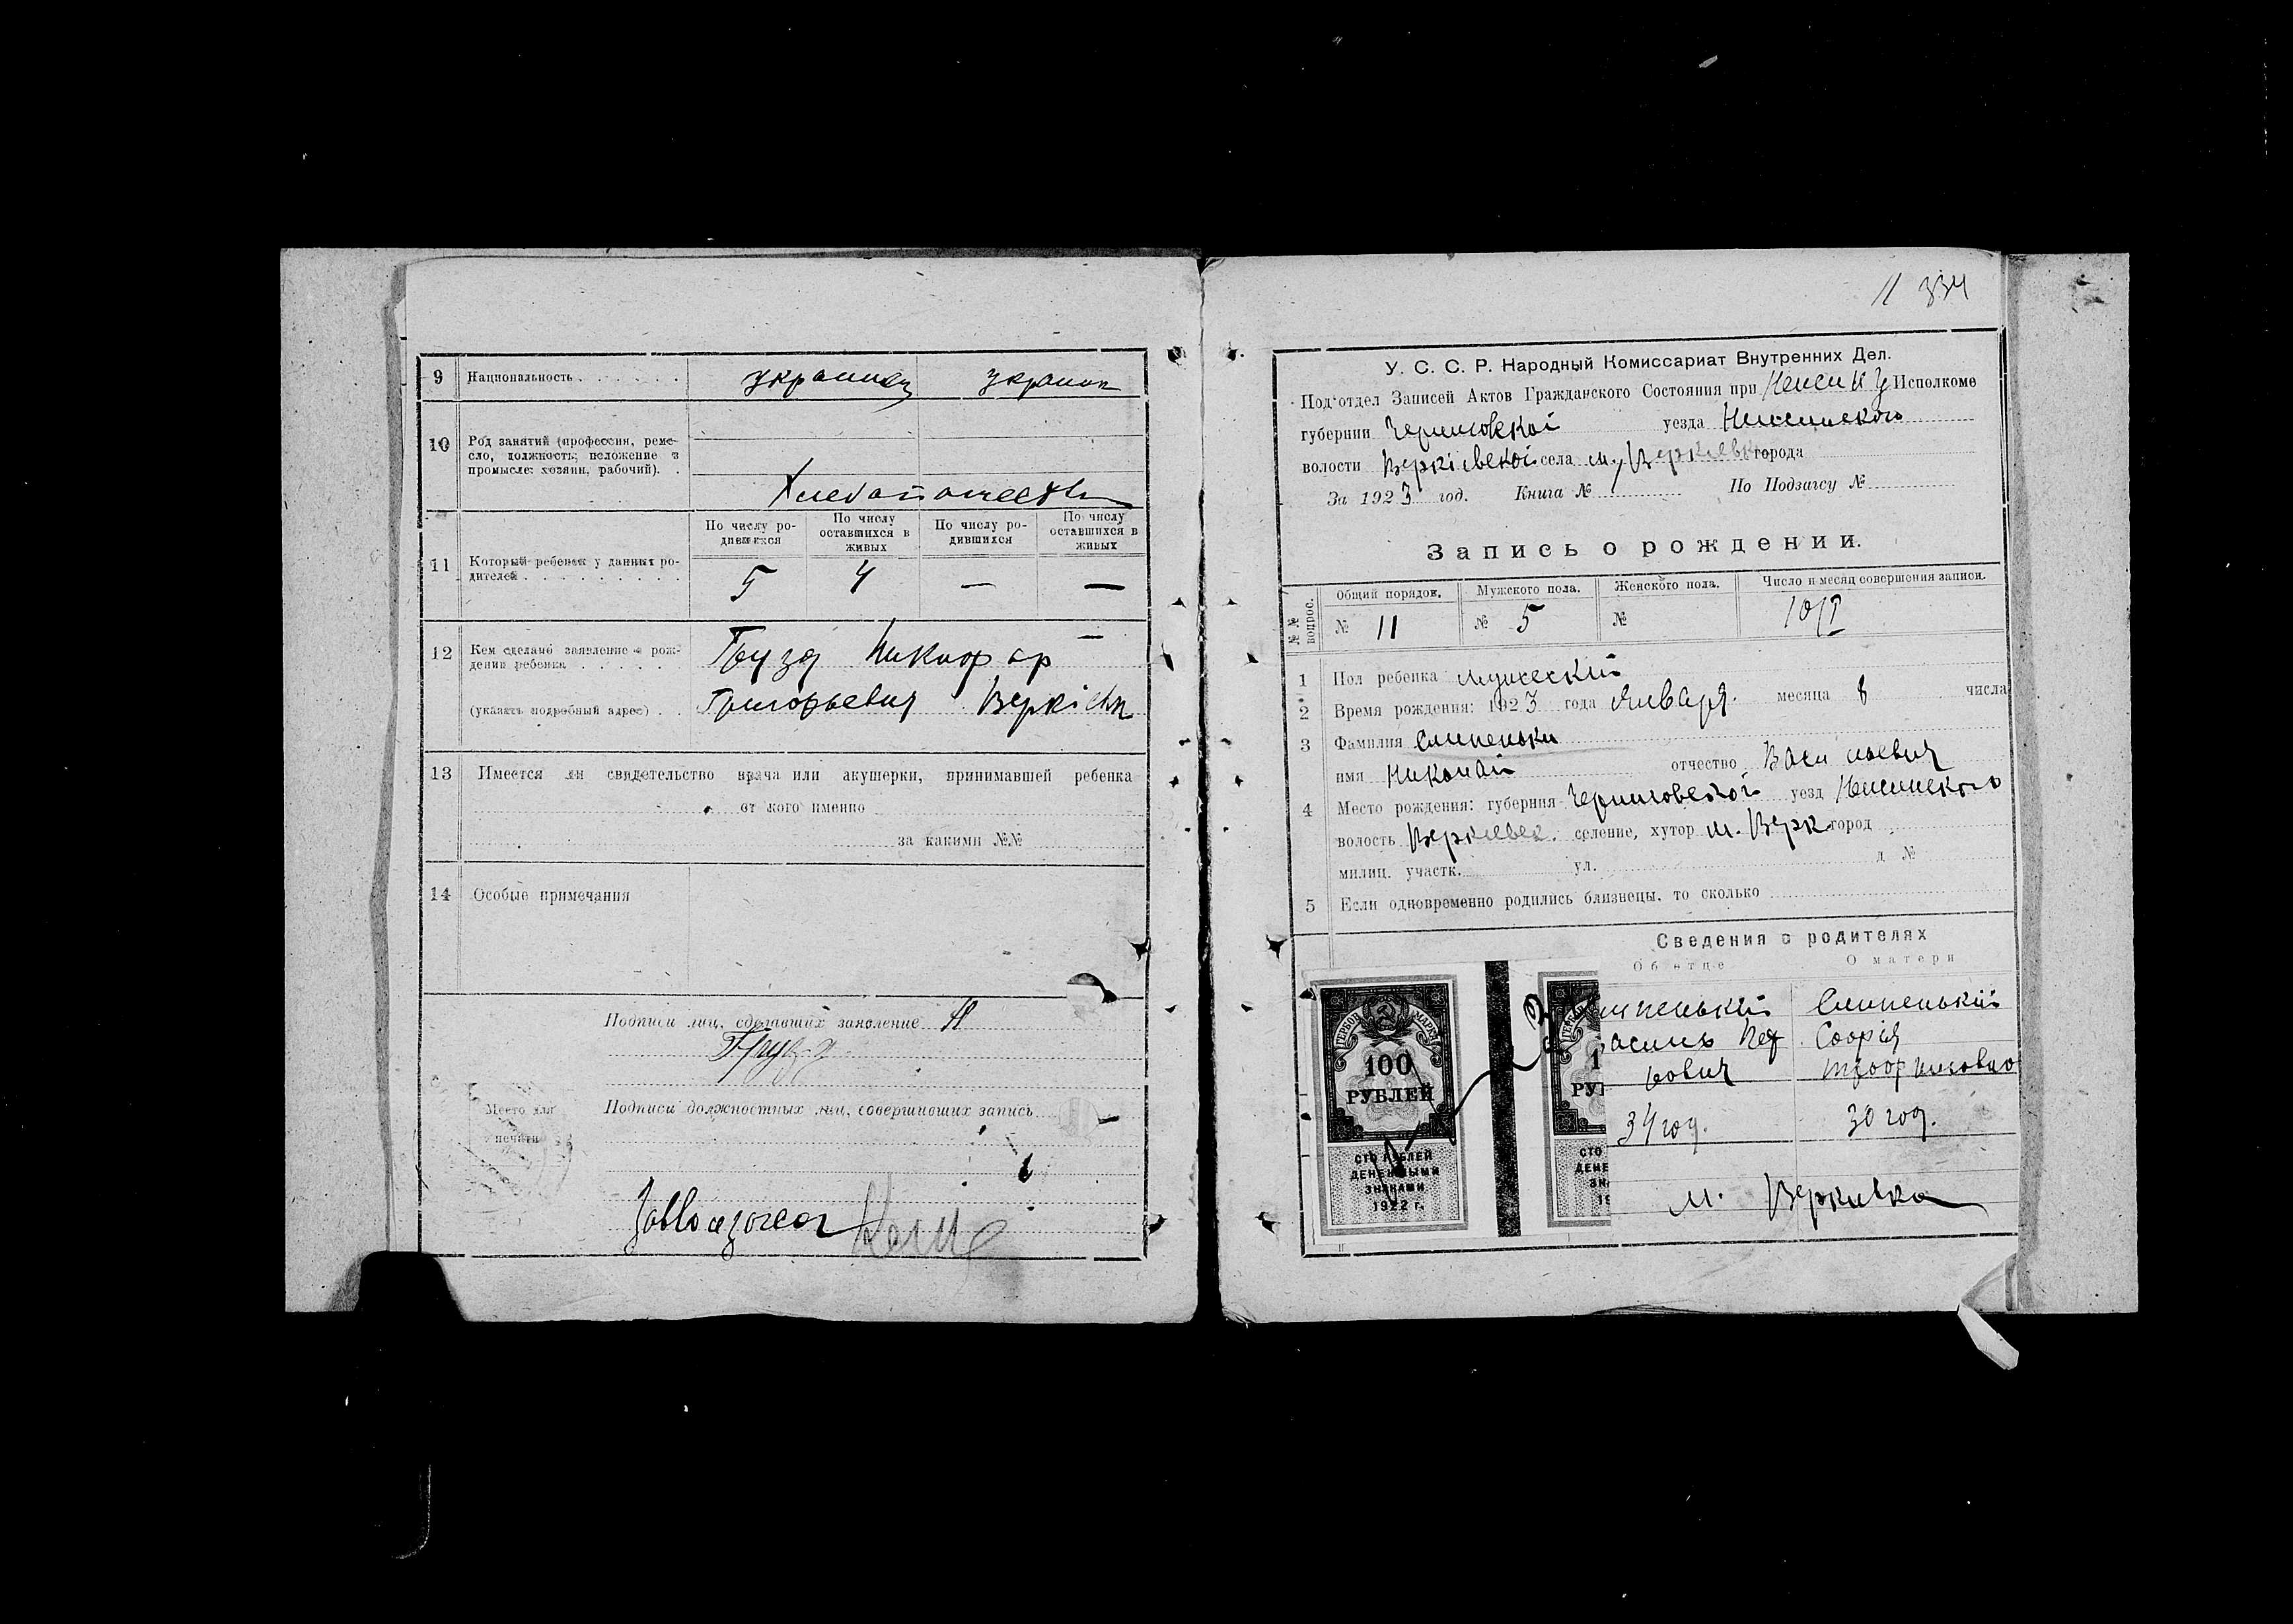 9 Национальность украинец украин
10 Род занятий (профессия, реме-
сло, должность; положение в
промысле: хозяин, рабочий).
11 Который ребенок у данных ро-
дителей
По числу ро-
дившихся
По числу
оставшихся в
живых
По числу ро-
дившихся
По числу
оставшихся в
живых
5 4 — —
12 Кем сделано заявление о рож-
дении ребенка
(указать подробный адрес) Григорьевич
13 Имеется ли свидетельство врача или акушерки, принимавшей ребенка
от кого именно
за какими №№
14 Особые примечания
Подписи лиц, сделавших заявление
Подписи должностных лиц, совершивших запись
Место для
печати
11 334
У. С. С. Р. Народный Комиссариат Внутренних Дел.
Под'отдел Записей Актов Гражданского Состояния при Исполкоме
губернии Черниговской уезда Нежинского
волости Веркіевской села м. Веркіевк города
За 1923 год. Книга № По Подзагсу №
Запись о рождении.
№№ вопрос.
Общий порядов. Мужского пола. Женского пола. Число и месяц совершения записи.
№ 11 № 5 № 10/I
1 Пол ребенка мужеский
2 Время рождения: 1923 года Января месяца 8 числа
3 Фамилия Слипеньки
имя Николай отчество Васильевич
4 Место рождения: губерния Черниговской уезд Нежинского
волость Веркиевск. селение, хутор м. Верк город
милиц. участк. ул. д №
5 Если одновременно родились близнецы, то сколько
Сведения о родителях
Об отце О матери
ГЕРБОВ МАРКА
100
РУБЛЕЙ
СТО РУБЛЕЙ
ДЕНЕЖНЫМИ
ЗНАКАМИ
1922 г.
липенький Слипенькій
асиль Пет Софія
рович
34 год. 30 год.
м. Веркиевка